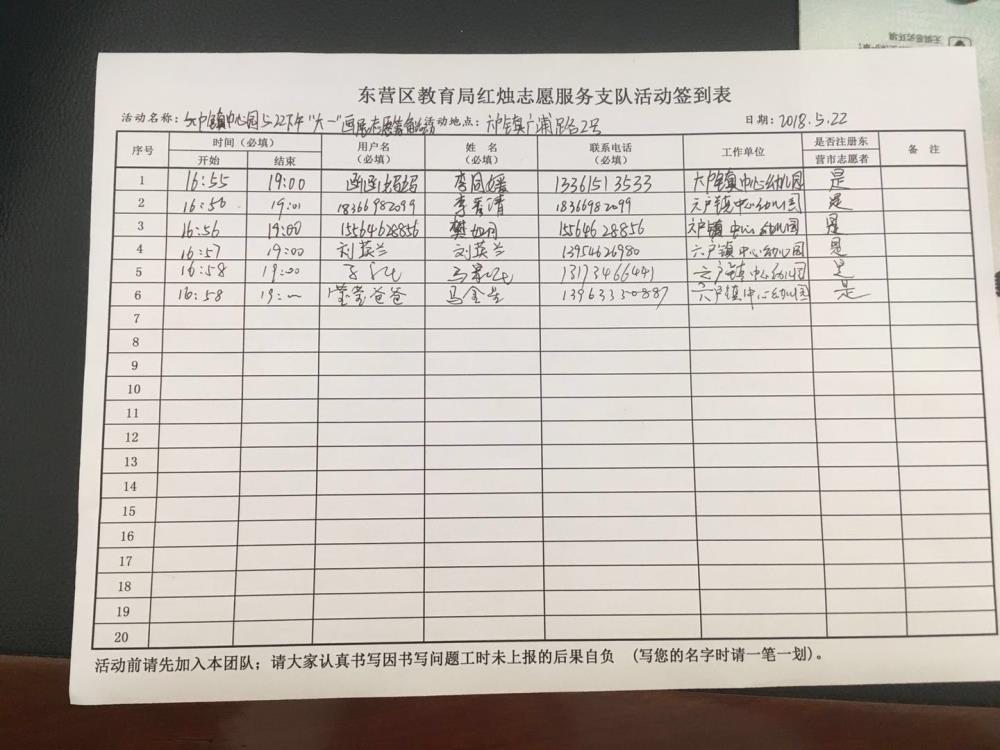 东营区教育局红烛志愿服务支队活动签到表
活动名称：六户镇中心园5.22下午"六一"画展志愿 活动地点： 日期：2018.5.22
序号 时间（必填） 用户名（必填） 姓名（必填） 联系电话（必填） 工作单位 是否注册东营市志愿者 备注
开始 结束
1 16:55 19:00 函函妈妈 李同媛 13361513533 六户镇中心幼儿园 是
2 16:56 19:01 18366982099 李秀清 18366982099 六户镇中心幼儿园 是
3 16:56 19:00 15564628856 樊如月 15564628856 六户镇中心幼儿园 是
4 16:57 19:00 刘英兰 刘英兰 13954626980 六户镇中心幼儿园 是
5 16:58 19:00 13173466441 六户镇中心幼儿园 是
6 16:58 莹莹爸爸 马金 13963350887 六户镇中心幼儿园 是
7
8
9
10
11
12
13
14
15
16
17
18
19
20
活动前请先加入本团队；请大家认真书写因书写问题工时未上报的后果自负 （写您的名字时请一笔一划）。